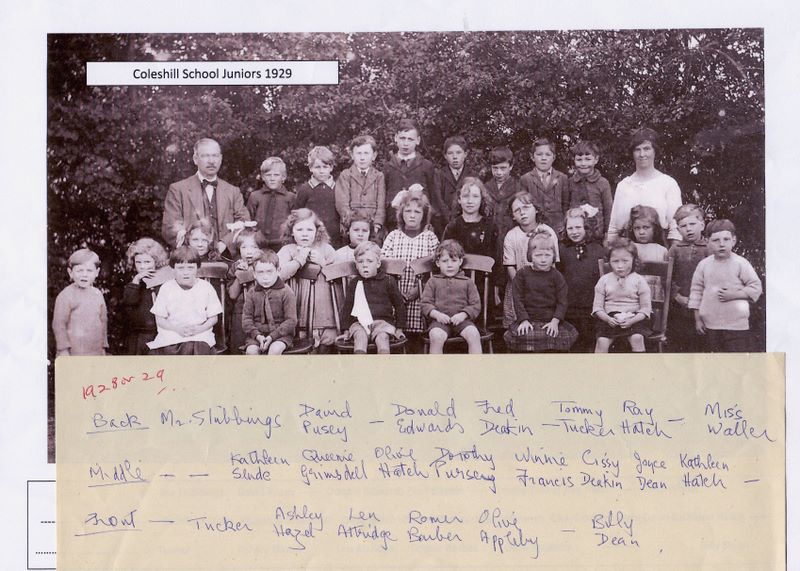 Coleshill School Juniors 1929
1928 or 29
David Donald Fred Tommy Ray Miss
Back Mr. Stubbings Pusey - Edwards Deakin - Tucker Hatch - Waller
Kathleen Queenie Olive Dorothy Winnie Cissy Joyce Kathleen
Middle - - Slade Grimsdell Hatch Pursey Francis Deakin Dean Hatch -
Ashley Len Romer Olive Billy
Front - Tucker Hazel Attridge Barber Appleby - Dean